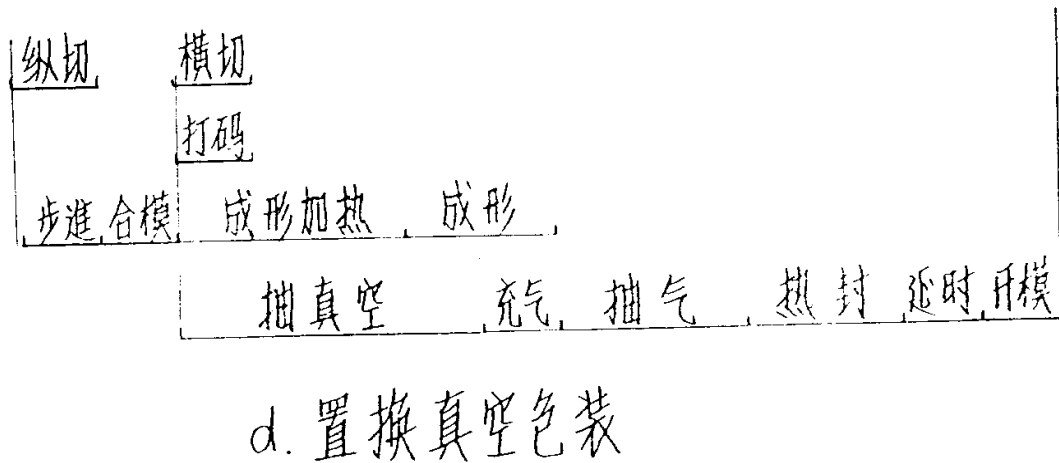 纵切 横切
打码
步進 合模 成形加热 成形
抽真空 充气 抽气 热封 延时 开模
d. 置换真空包装